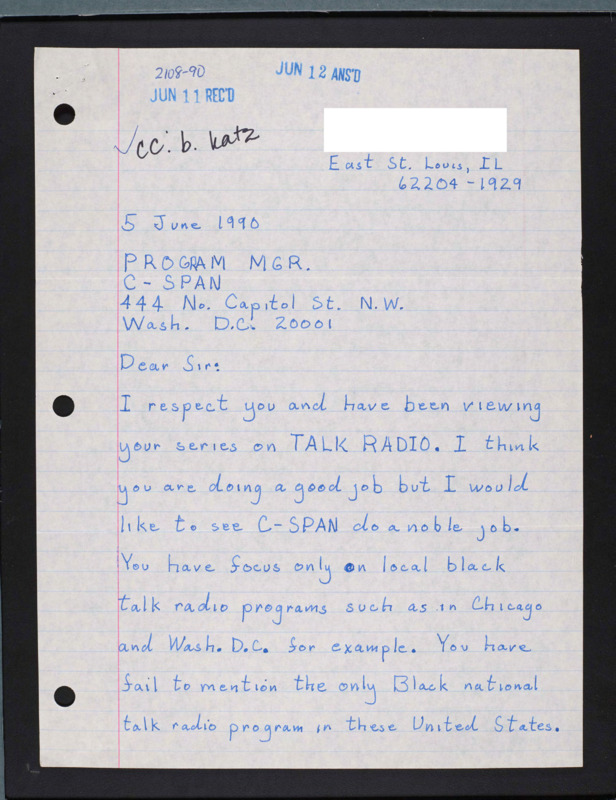 2108-90
JUN 12 ANS'D
JUN 11 REC'D
cc: b. katz
East St. Louis, IL
62204-1929
5 June 1990
PROGRAM MGR.
C-SPAN
444 No. Capitol St. N.W.
Wash. D.C. 20001
Dear Sir:
I respect you and have been viewing
your series on TALK RADIO. I think
you are doing a good job but I would
like to see C-SPAN do a noble job.
You have focus only on local black
talk radio programs such as in Chicago
and Wash. D.C. for example. You have
fail to mention the only Black national
talk radio program in these United States.